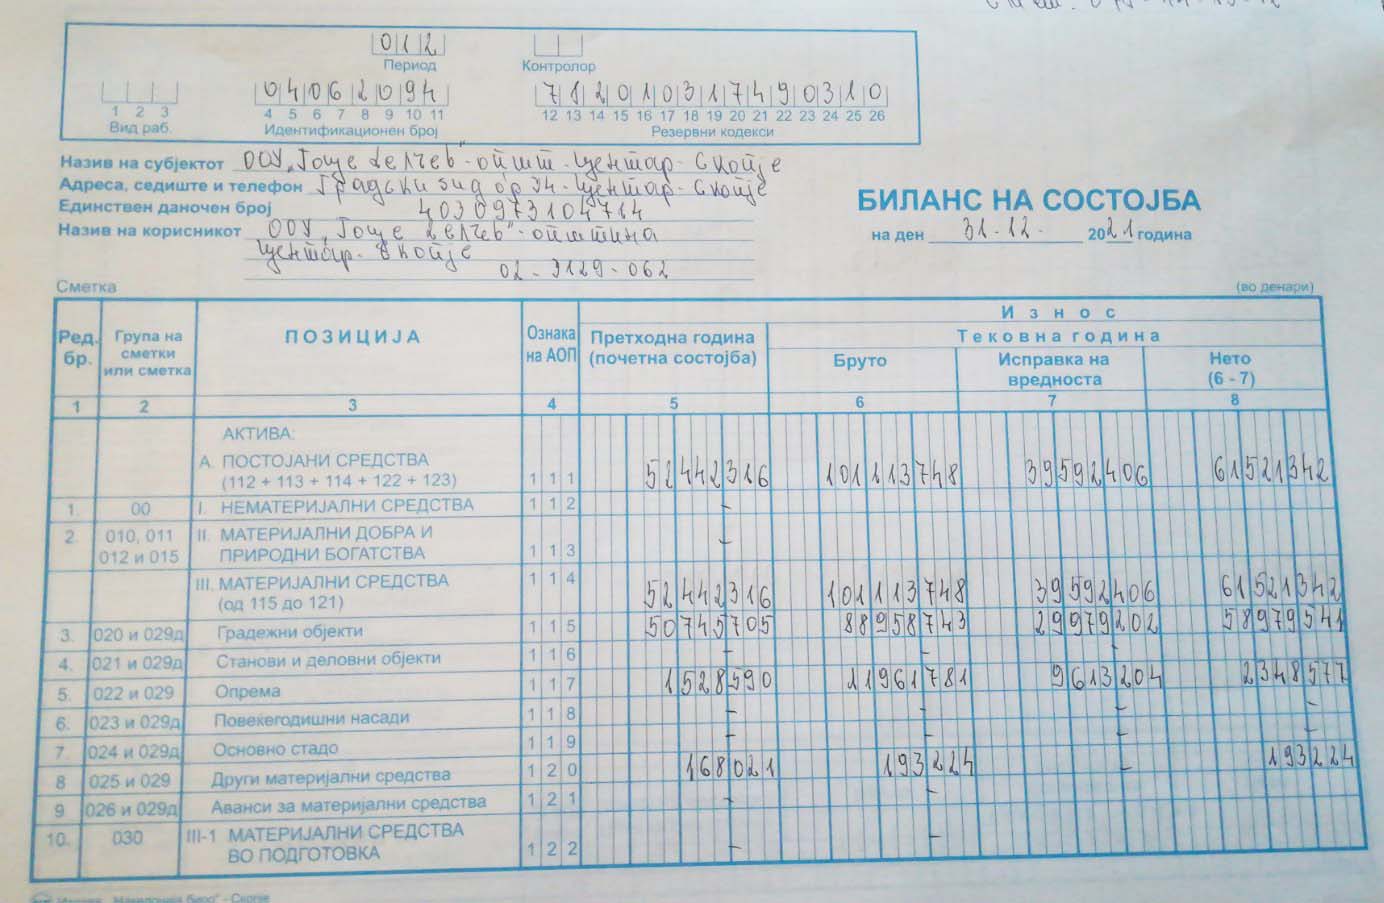 012
Период
Контролор
1 2 3
Вид раб.
04062094
4 5 6 7 8 9 10 11
Идентификационен број
712010317490310
12 13 14 15 16 17 18 19 20 21 22 23 24 25 26
Резервни кодекси
Назив на субјектот ООУ „Гоце Делчев" - општ. Центар - Скопје
Адреса, седиште и телефон Градски ѕид бр 34 - Центар - Скопје
Единствен даночен број 4030973104714
Назив на корисникот ООУ „Гоце Делчев" - општина
Центар - Скопје
02-3129-062
БИЛАНС НА СОСТОЈБА
на ден 31.12. 2021 година
Сметка
(во денари)
Ред. бр. Група на сметки или сметка ПОЗИЦИЈА Ознака на АОП Износ
Претходна година (почетна состојба) Тековна година
Бруто Исправка на вредноста Нето (6 - 7)
1 2 3 4 5 6 7 8
АКТИВА:
А. ПОСТОЈАНИ СРЕДСТВА
(112 + 113 + 114 + 122 + 123) 111 52442316 101113748 39592406 61521342
1. 00 I. НЕМАТЕРИЈАЛНИ СРЕДСТВА 112 -
2. 010, 011 II. МАТЕРИЈАЛНИ ДОБРА И
012 и 015 ПРИРОДНИ БОГАТСТВА 113 -
III. МАТЕРИЈАЛНИ СРЕДСТВА 114
(од 115 до 121) 52442316 101113748 39592406 61521342
3. 020 и 029д Градежни објекти 115 50745705 88958743 29979202 58979541
4. 021 и 029д Станови и деловни објекти 116 - - -
5. 022 и 029 Опрема 117 1528590 11961781 9613204 2348577
6. 023 и 029д Повеќегодишни насади 118 - - - -
7. 024 и 029д Основно стадо 119 - - - -
8 025 и 029 Други материјални средства 120 168021 193224 - 193224
9 026 и 029д Аванси за материјални средства 121 - -
10. 030 III-1 МАТЕРИЈАЛНИ СРЕДСТВА
ВО ПОДГОТОВКА 122 - -